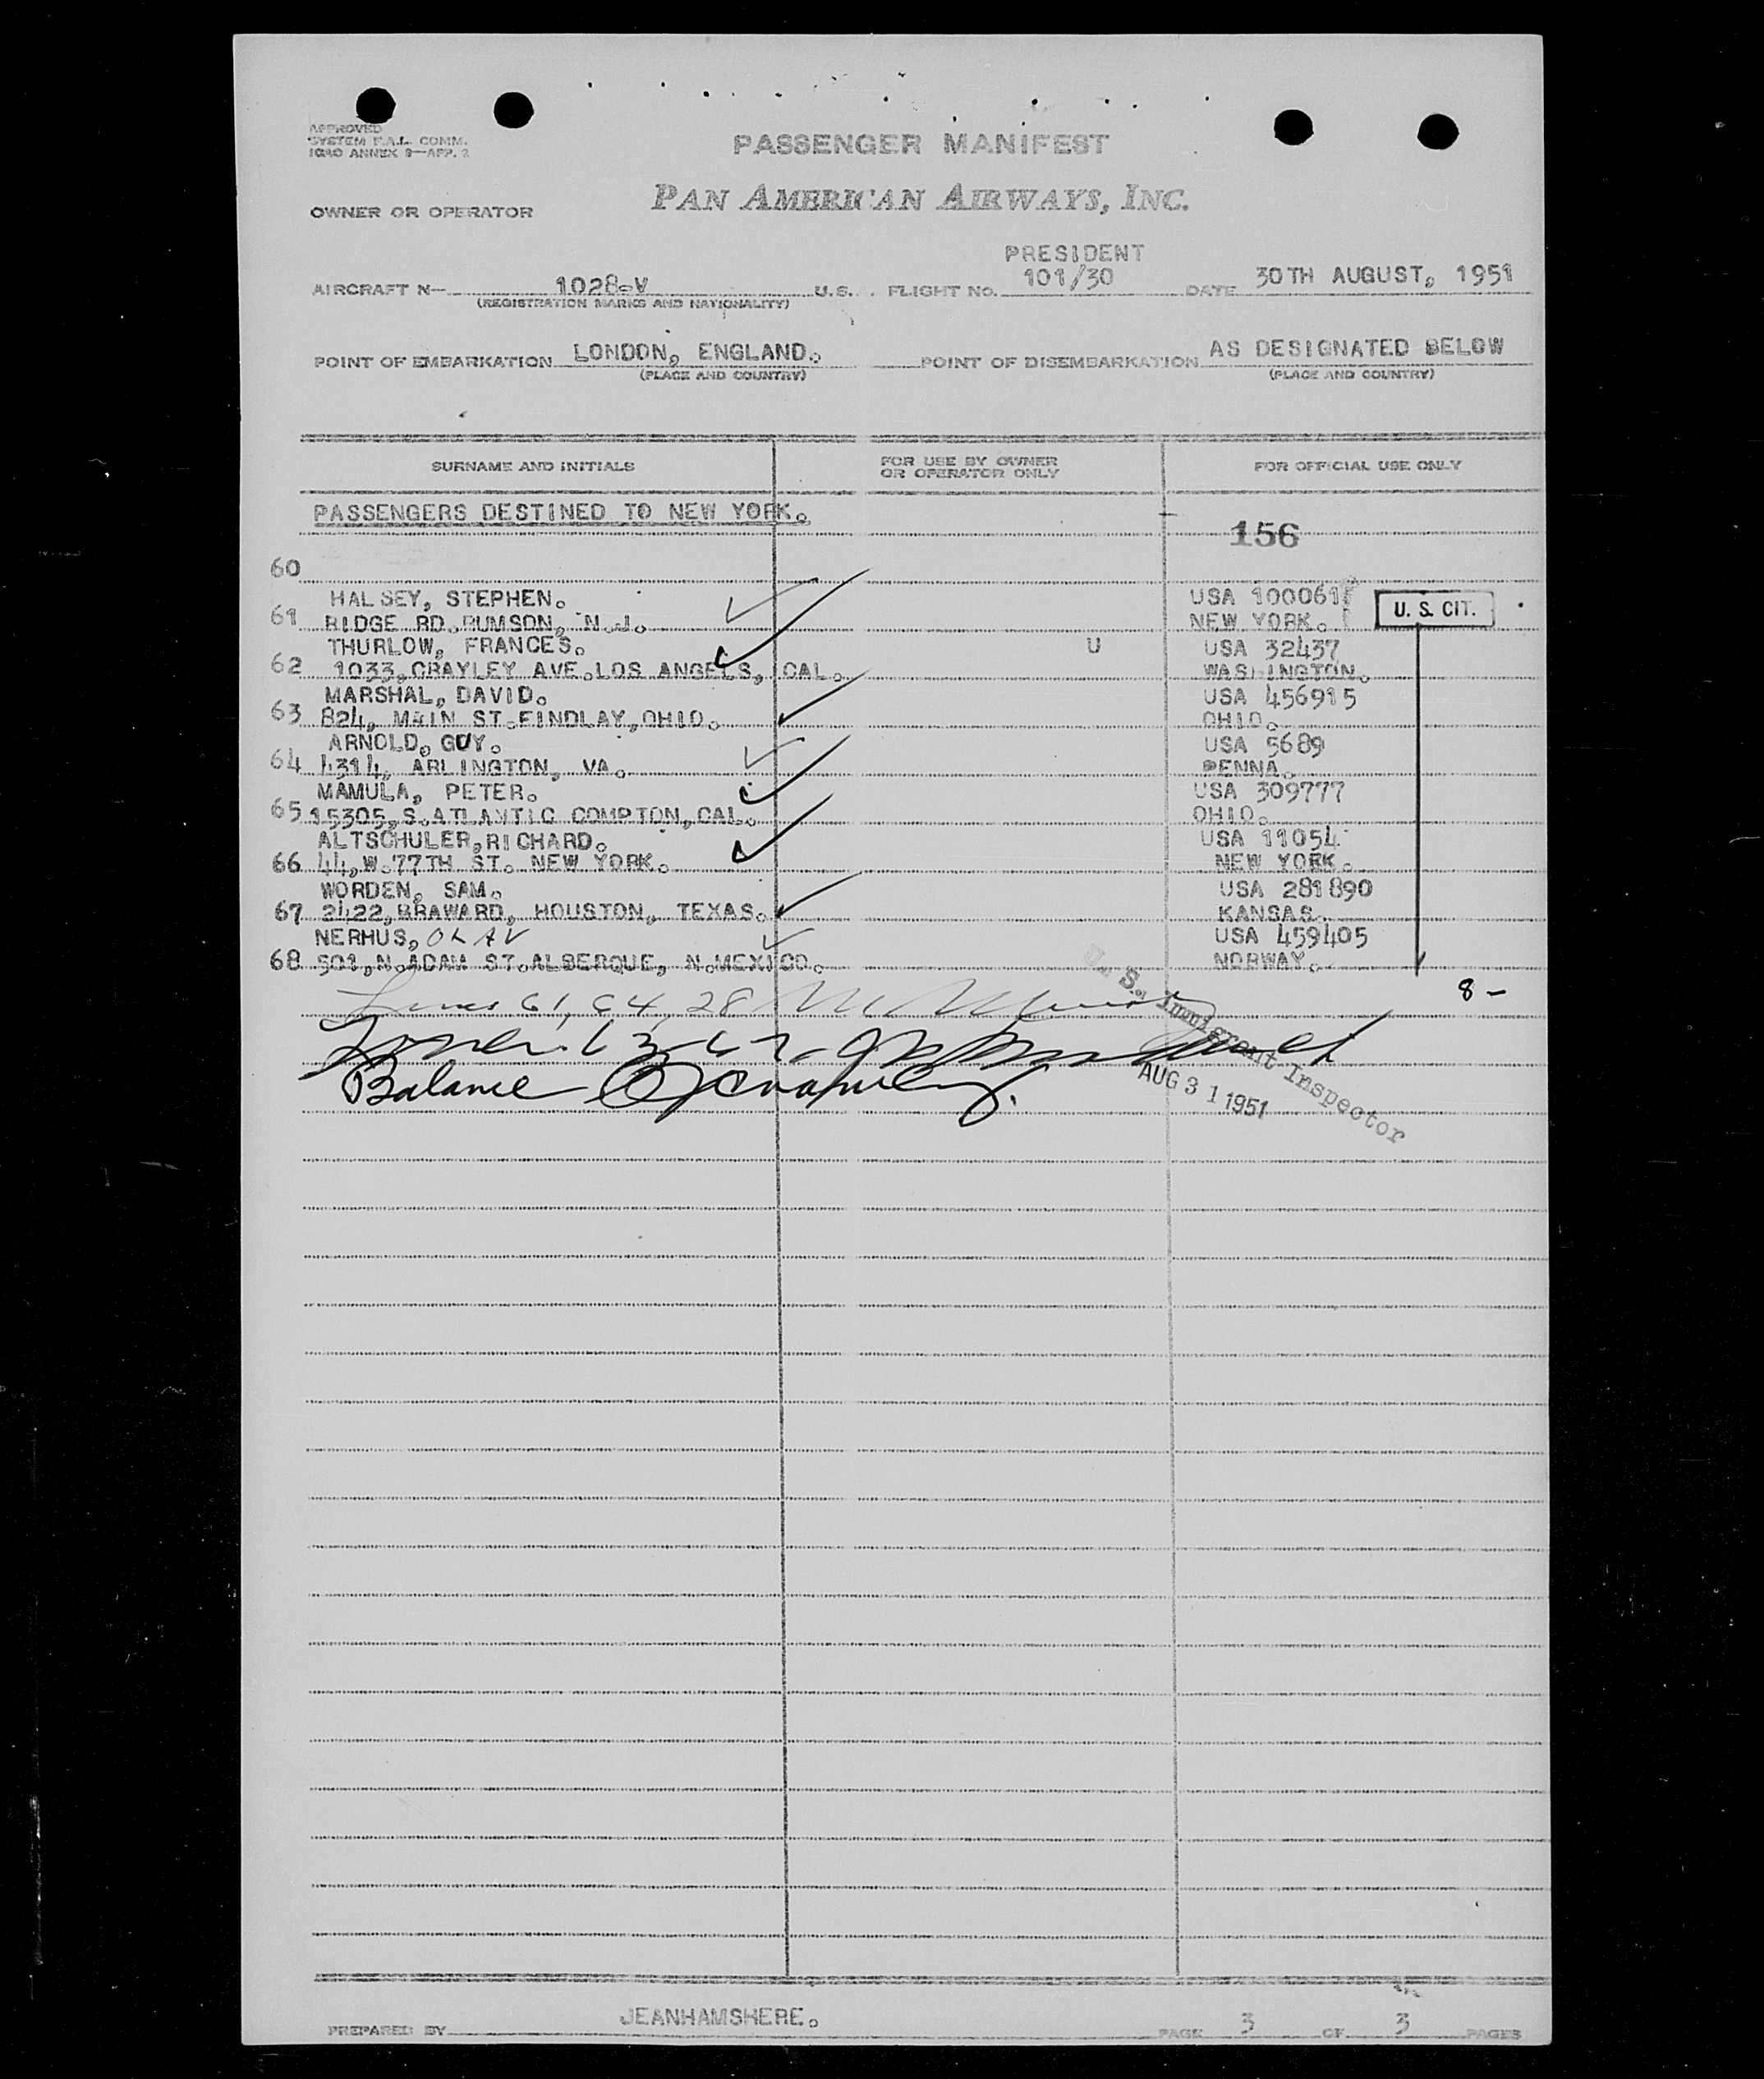 APPROVED
SYSTEM F.A.L. COMM.
ICAO ANNEX 9—APP. 2
PASSENGER MANIFEST
OWNER OR OPERATOR PAN AMERICAN AIRWAYS, INC.
PRESIDENT
AIRCRAFT N— 1028-V U.S. FLIGHT NO. 101/30 DATE 30TH AUGUST, 1951
(REGISTRATION MARKS AND NATIONALITY)
POINT OF EMBARKATION LONDON, ENGLAND. POINT OF DISEMBARKATION AS DESIGNATED BELOW
(PLACE AND COUNTRY) (PLACE AND COUNTRY)
SURNAME AND INITIALS FOR USE BY OWNER OR OPERATOR ONLY FOR OFFICIAL USE ONLY
PASSENGERS DESTINED TO NEW YORK.
156
60
HALSEY, STEPHEN. USA 100061
61 RIDGE RD.RUMSON, N.J. NEW YORK. U. S. CIT.
THURLOW, FRANCES. U USA 32437
62 1033,CRAYLEY AVE.LOS ANGELS, CAL. WASHINGTON.
MARSHAL, DAVID. USA 456915
63 824, MAIN ST.FINDLAY,OHIO. OHIO.
ARNOLD, GUY. USA 5689
64 4314, ARLINGTON, VA. PENNA.
MAMULA, PETER. USA 309777
65 15305,S.ATLANTIC COMPTON,CAL. OHIO.
ALTSCHULER,RICHARD. USA 11054
66 44,W.77TH ST. NEW YORK. NEW YORK.
WORDEN, SAM. USA 281890
67 2422,BRAWARD, HOUSTON, TEXAS. KANSAS.
NERHUS, OLAV USA 459405
68 501,N.ADAM ST.ALBERQUE, N.MEXICO. NORWAY.
8 –
Lines 61, 64, 28
Lines 63-67-
Balance
U. S. Immigrant Inspector
AUG 31 1951
PREPARED BY JEANHAMSHERE. PAGE 3 OF 3 PAGES